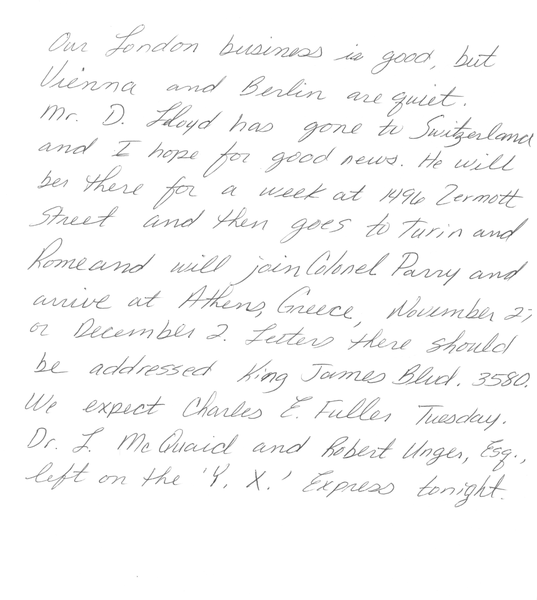 Our London business is good, but
Vienna and Berlin are quiet.
Mr. D. Lloyd has gone to Switzerland
and I hope for good news. He will
ber there for a week at 1496 Zermott
Street and then goes to Turin and
Rome and will join Colonel Parry and
arrive at Athens, Greece, November 27
or December 2. Letters there should
be addressed King James Blvd. 3580.
We expect Charles E. Fuller Tuesday.
Dr. L. McQuaid and Robert Unger, Esq.,
left on the 'Y. X.' Express tonight.